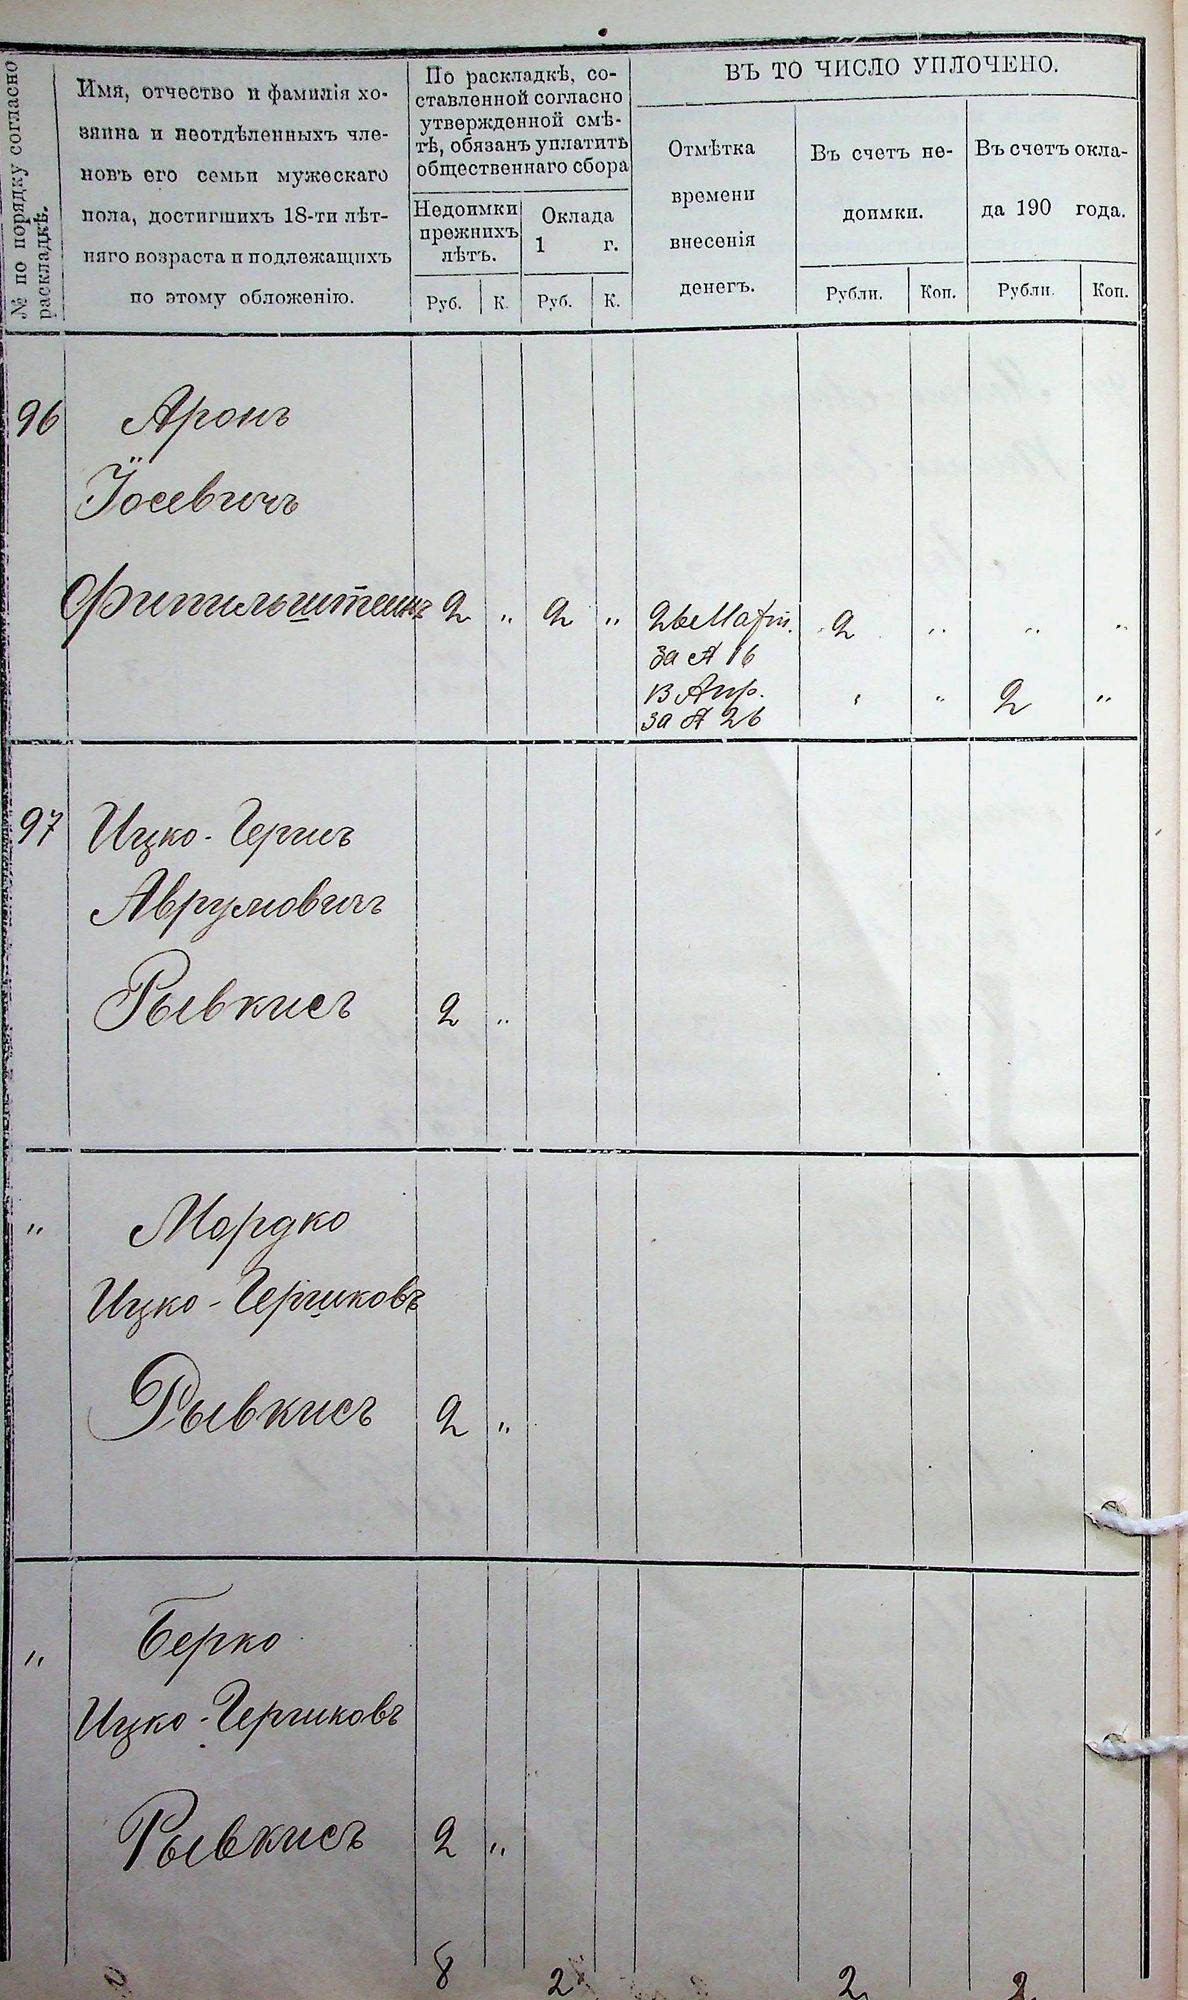 № по порядку согласно
раскладкѣ.
Имя, отчество и фамилія хо-
зяина и неотдѣленныхъ чле-
новъ его семьи мужескаго
пола, достигшихъ 18-ти лѣт-
няго возраста и подлежащихъ
по этому обложенію.
По раскладкѣ, со-
ставленной согласно
утвержденной смѣ-
тѣ, обязанъ уплатить
общественнаго сбора
Недоимки
прежнихъ
лѣтъ.
Оклада
1 г.
Руб. К. Руб. К.
ВЪ ТО ЧИСЛО УПЛОЧЕНО.
Отмѣтка
времени
внесенія
денегъ.
Въ счетъ не-
доимки.
Въ счетъ окла-
да 190 года.
Рубли. Коп. Рубли. Коп.
96 Аронъ
Іосевичъ
Фитильштеинъ 2 " 2 " 2 " " "
за № 16
13 Апр. " " 2 "
за № 26
97 Ицко-Гершъ
Аврумовичъ
Рывкисъ 2 "
" Мордко
Ицко-Гершковъ
Рывкисъ 2 "
" Берко
Ицко-Гершковъ
Рывкисъ 2 "
8 2 2 2